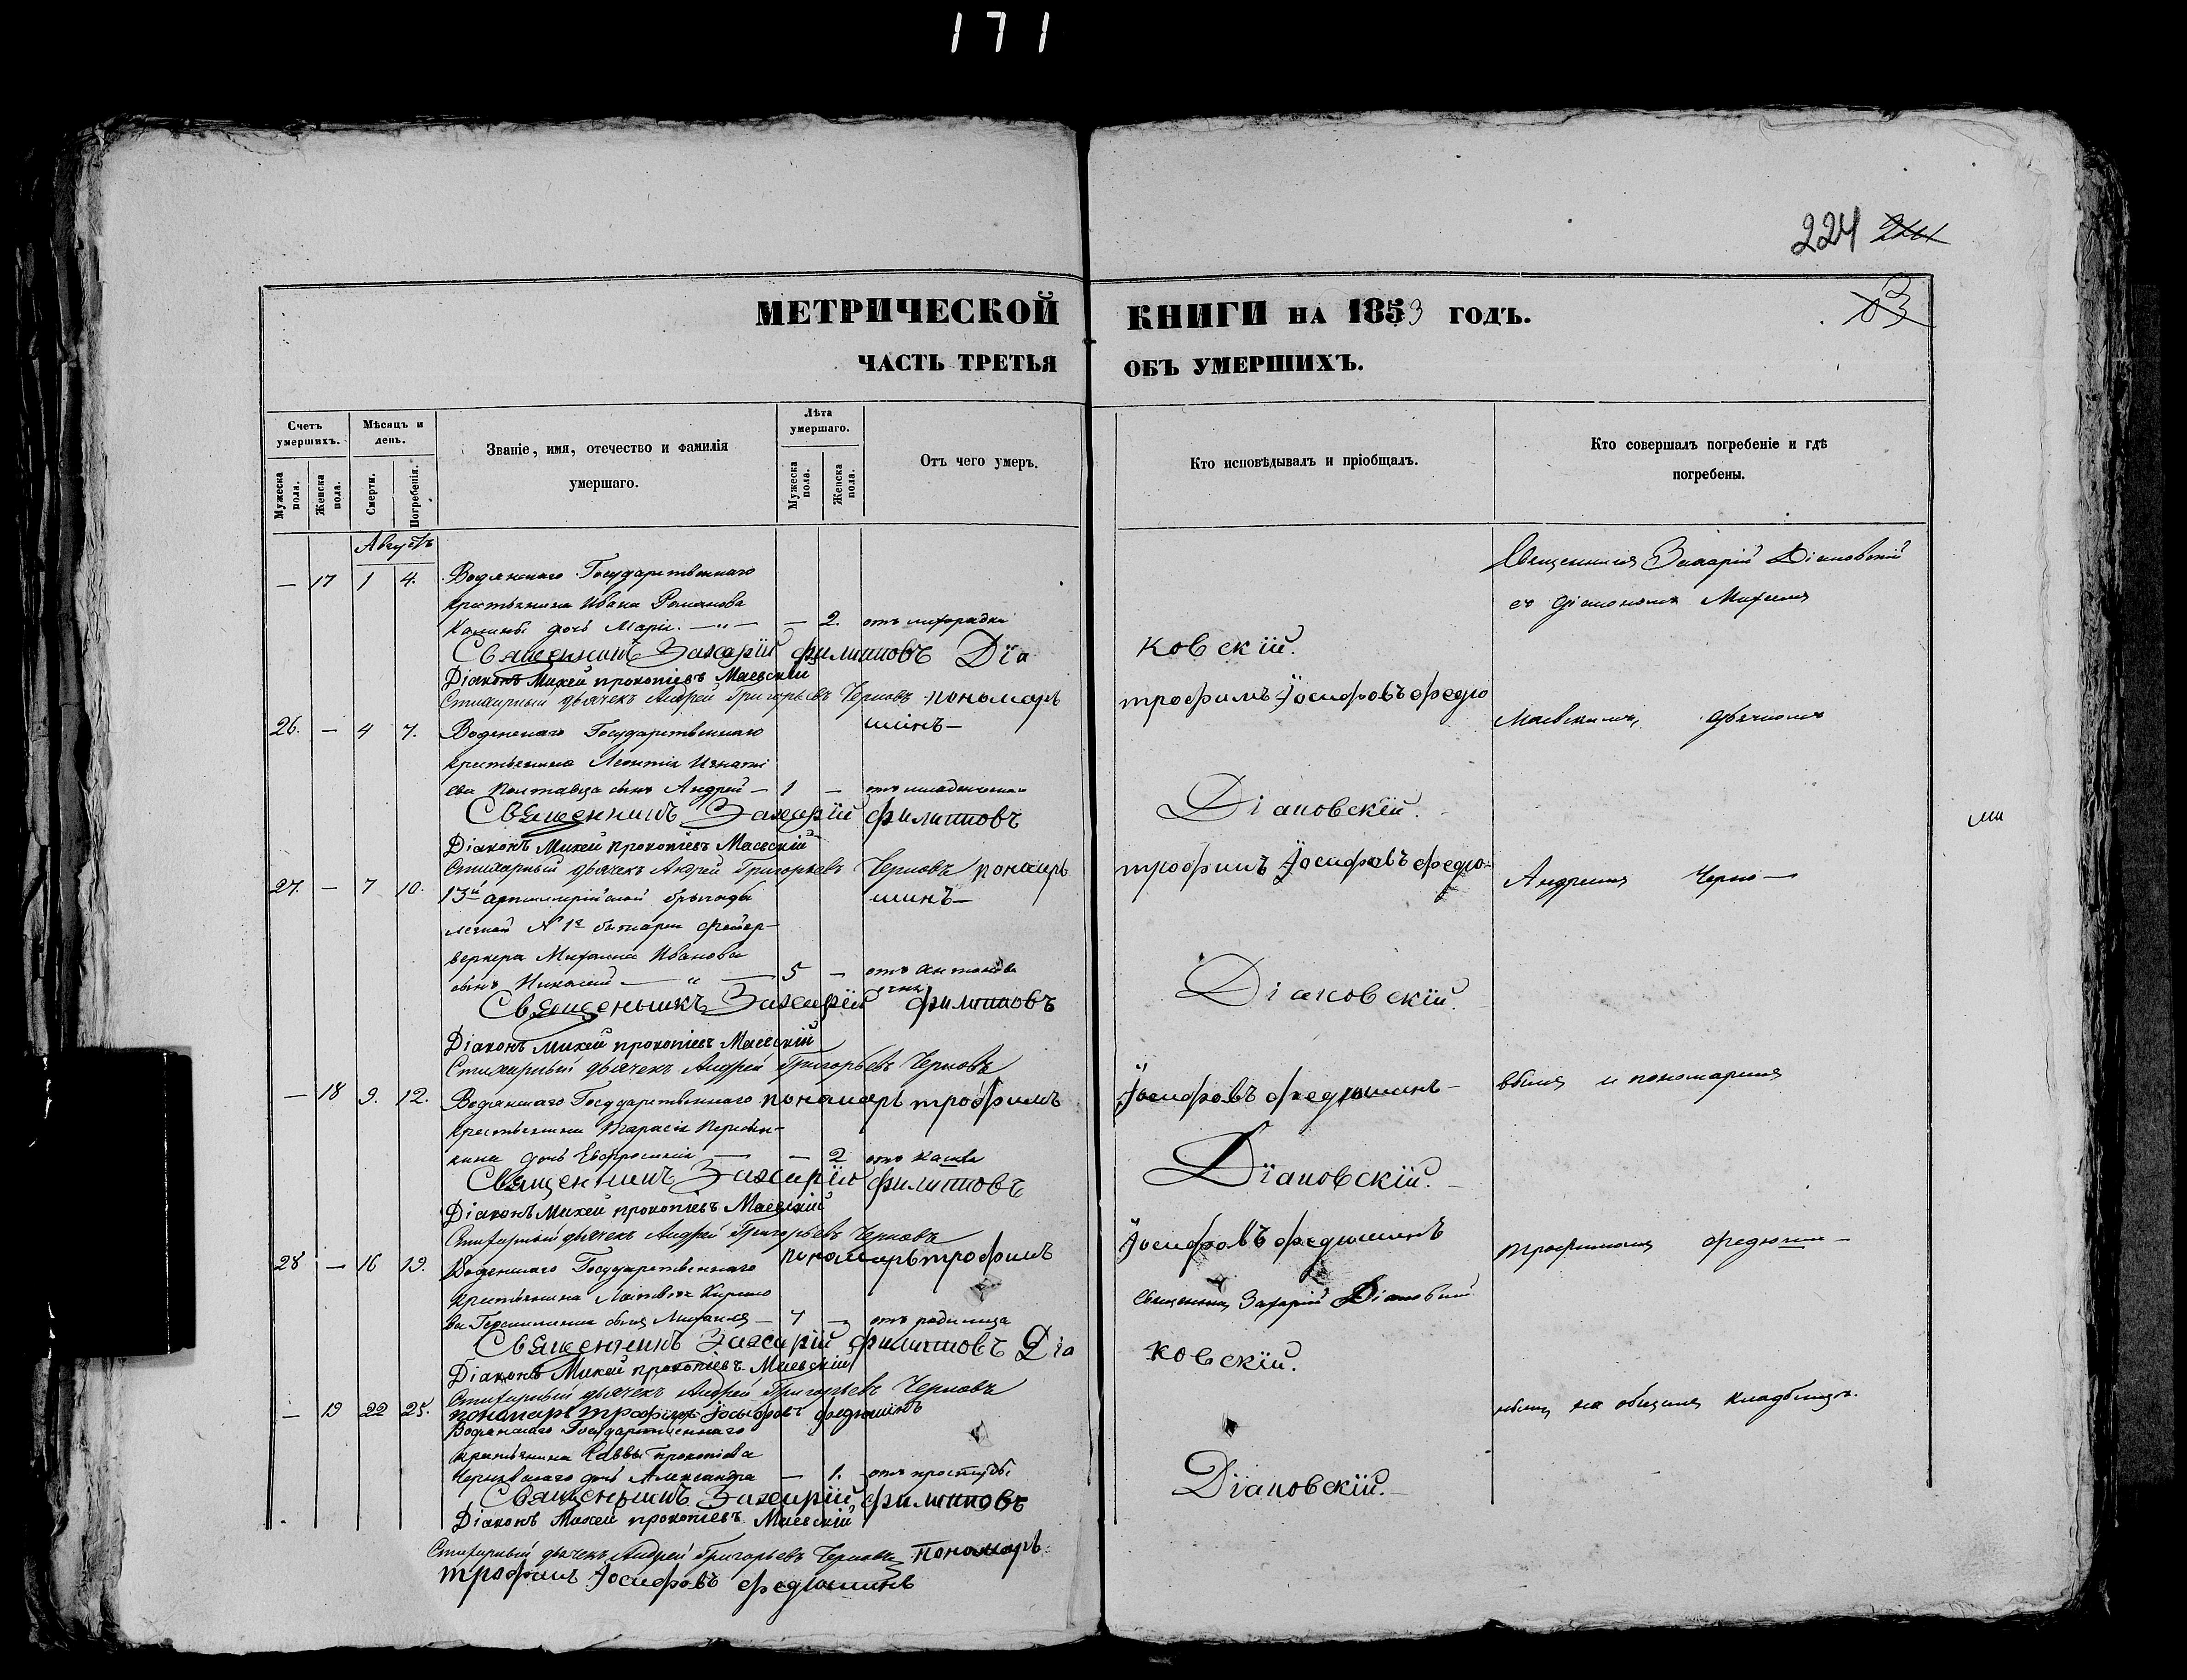 171
224
МЕТРИЧЕСКОЙ КНИГИ НА 1853 ГОДЪ.
ЧАСТЬ ТРЕТЬЯ ОБЪ УМЕРШИХЪ.
Счетъ умершихъ.
Мѣсяцъ и день.
Званіе, имя, отечество и фамилія умершаго.
Лѣта умершаго.
Отъ чего умеръ.
Кто исповѣдывалъ и пріобщалъ.
Кто совершалъ погребеніе и гдѣ погребены.
Мужеска пола.
Женска пола.
Смерти.
Погребенія.
Мужеска пола.
Женска пола.
Августъ
— 17 1 4. Водянаго Государственнаго
крестьянина Ивана Романова
дочь Марія — „ — — 2. отъ лихорадки
Священникъ Захарій Филиповъ Діаковскій.
Діаконъ Михей Прокопіевъ Маевскій
Стихарный дьячекъ Андрей Григорьевъ Черновъ пономарь трофимъ Іосифовъ федюшинъ—
26. — 4 7. Государственнаго
крестьянина Леонтія Игнатіева
сынъ Андрей — 1 —
Священникъ Захарій Филиповъ Діаковскій.
Діаконъ Михей Прокопіевъ Маевскій
Стихарный дьячекъ Андрей Григорьевъ Черновъ пономарь трофимъ Іосифовъ федюшинъ—
27. — 7 10. 13й артиллерійской бригады
легкой № 1й батареи фейерверкера Михаила Иванова
сынъ Николай — „ — 5 — отъ антонова огня
Священникъ Захарій Филиповъ Діаковскій.
Діаконъ Михей прокопіевъ Маевскій
Стихарный дьячекъ Андрей Григорьевъ Черновъ
пономарь трофимъ Іосифовъ федюшинъ—
— 18 9. 12. Государственнаго
крестьянина Тарасія
дочь Евфросинія — — 2 отъ кашля
Священникъ Захарій Филиповъ Діаковскій.
Діаконъ Михей прокопіевъ Маевскій
Стихарный дьячекъ Андрей Григорьевъ Черновъ
пономарь трофимъ Іосифовъ федюшинъ
28 — 16 19. Государственнаго
крестьянина Матвея
сынъ Михаилъ — 7 — отъ родимца
Священникъ Захарій Діаковскій
Священникъ Захарій Филиповъ Діаковскій.
Діаконъ Михей прокопіевъ Маевскій
Стихарный дьячекъ Андрей Григорьевъ Черновъ
пономарь трофимъ Іосифовъ федюшинъ
— 19 22 25. Государственнаго
крестьянина Саввы Прокопіева
дочь Александра — 1. отъ простуды
Священникъ Захарій Филиповъ Діаковскій.
Діаконъ Михей прокопіевъ Маевскій
Стихарный дьячекъ Андрей Григорьевъ Черновъ пономарь
трофимъ Іосифовъ федюшинъ
Священникъ Захарій Діаковскій
съ діакономъ Михеемъ
Маевскимъ, дьячкомъ
Андреемъ Черно—
вымъ и пономаремъ
трофимомъ федюши—
нымъ на общемъ кладбищѣ.